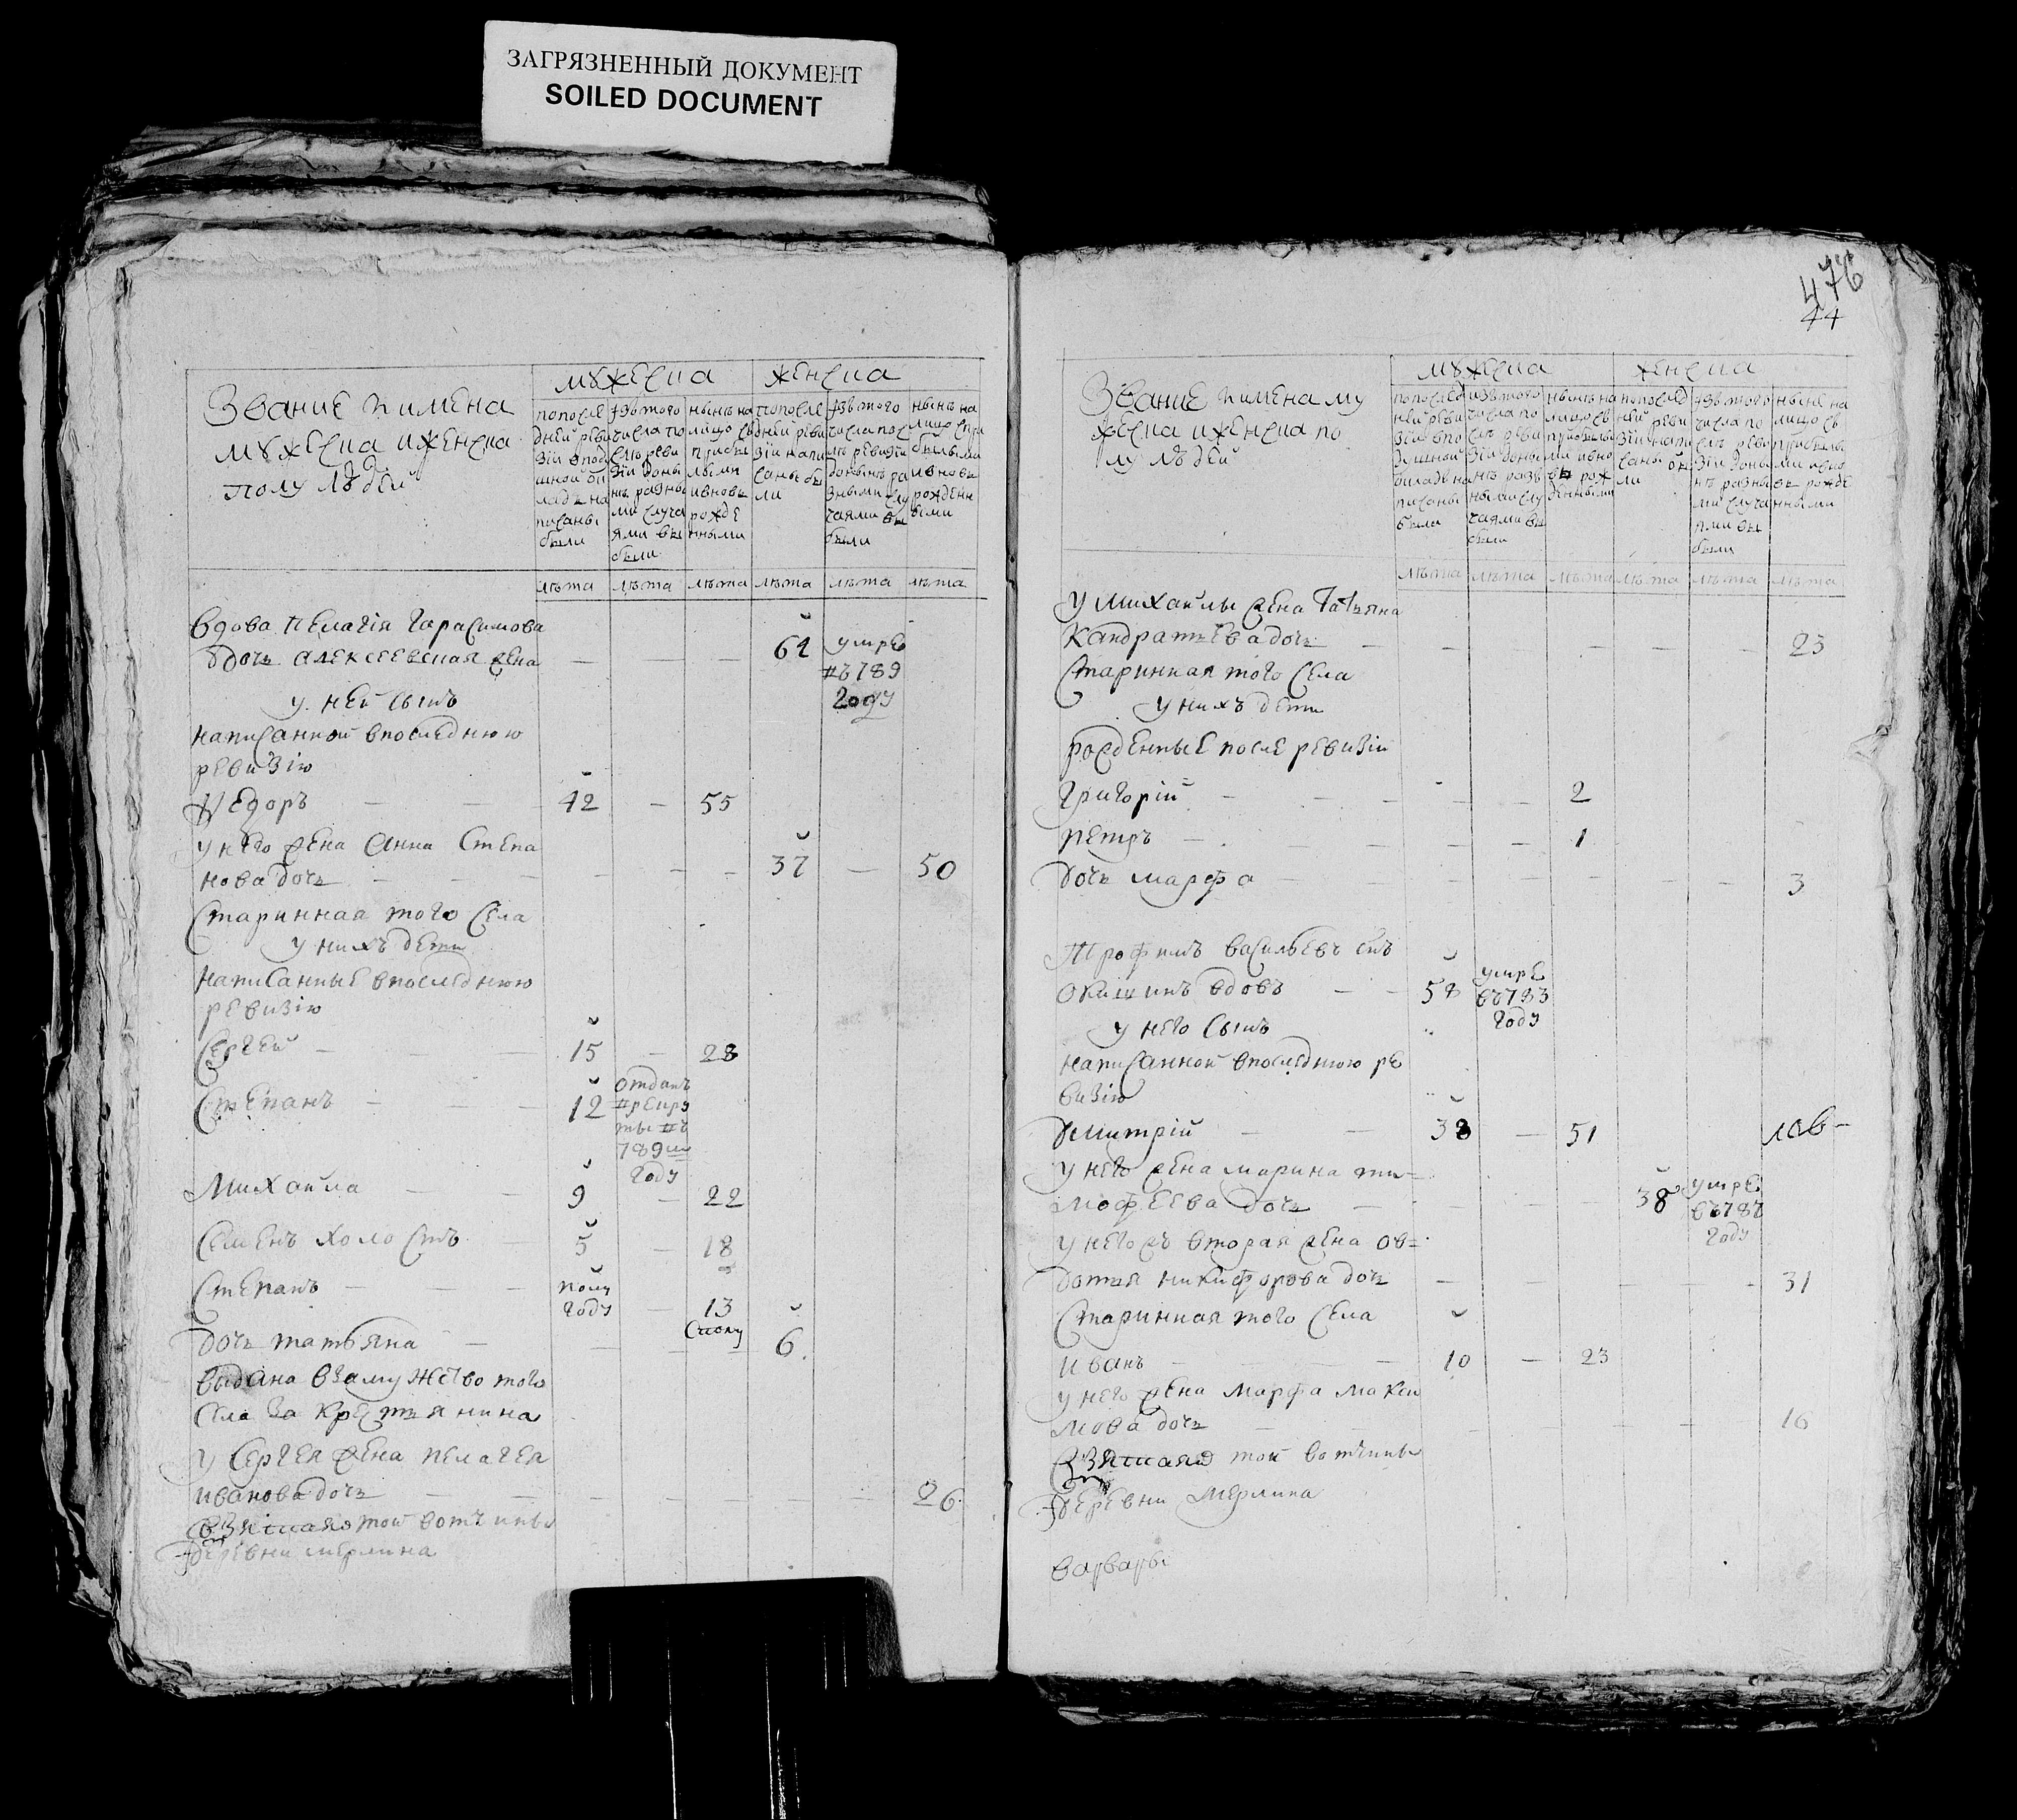 ЗАГРЯЗНЕННЫЙ ДОКУМЕНТ
SOILED DOCUMENT
Звание и имена
мужеска и женска
полу людей
мужеска
женска
по после
дней реви
зіи в поду
шной ок
ладъ на
писаны
были
изъ того
числа по
слѣ реви
зіи доны
нѣ разны
ми случа
ями вы
были
нынѣ на
лицо съ
прибы
лыми
и вновь
рожде
нными
по после
дней реви
зіи напи
саны бы
ли
изъ того
числа посл
лѣ ревизіи
донынѣ ра
зными слу
чаями вы
были
нынѣ на
лицо с при
былыми
и вновь
рожденн
ыми
лѣта лѣта лѣта лѣта лѣта лѣта
Вдова Пелагія Гарасимова
дочь алексеевская жена — — — 61 умре
въ 789
году
у ней сынъ
написанной в последнюю
ревизію
Ѳедоръ — — 42 — 55
у него жена Анна Степа
нова дочь — — — — — 37 — 50
Старинная того села
у нихъ дети
написанные в последнюю
ревизію
Сергей — — — 15 — 28
Степанъ — — — 12 отданъ
в рекру
ты въ
789м
году
Михайла — — 9 — 22
Семенъ холостъ — 5 — 18
Степанъ — — — полу
году — 13
с полу
дочь татьяна — — — — 6
выдана взамужство того
села за крестьянина
у Сергея жена пелагея
иванова дочь — — — — — — — 26
взятая той вотчины
деревни мерлина
476
44
Звание и имена му
жеска и женска по
лу людей
мужеска
женска
по послед
ней реви
зіи в по
душной
окладе на
писаны
были
изъ того
числа по
слѣ реви
зіи доны
нѣ разъ
ными слу
чаями вы
были
нынѣ на
лицо съ
прибылы
ми и вно
вь рож
денными
по послед
ней реви
зіи напи
саны бы
ли
изъ того
числа по
слѣ реви
зіи доны
нѣ разны
ми случа
ями вы
были
нынѣ на
лицо съ
прибылы
ми и вно
вь рожде
нными
лѣта лѣта лѣта лѣта лѣта лѣта
у михайлы жена Татьяна
Кандратьева дочь — — — — — 23
Старинная того села
у нихъ дети
рожденные после ревизіи
Григорій — — — — — 2
петръ — — — — 1
дочь марфа — — — — — — — 3
Трофимъ васильевъ сынъ
вдовъ — — 58 умре
въ 783
году
у него сынъ
написанной в последнюю ре
визію
Дмитрій — — 38 — 51
у него жена марина ти=
мофеева дочь — — — — 38 умре
въ 787
году
у негожъ вторая жена ов=
дотья никифорова дочь — — — — — 31
Старинная того села
иванъ — — 10 — 23
у него жена марфа макси
мова дочь — — — — — 16
взятая той вотчины
деревни мерлина
варвары